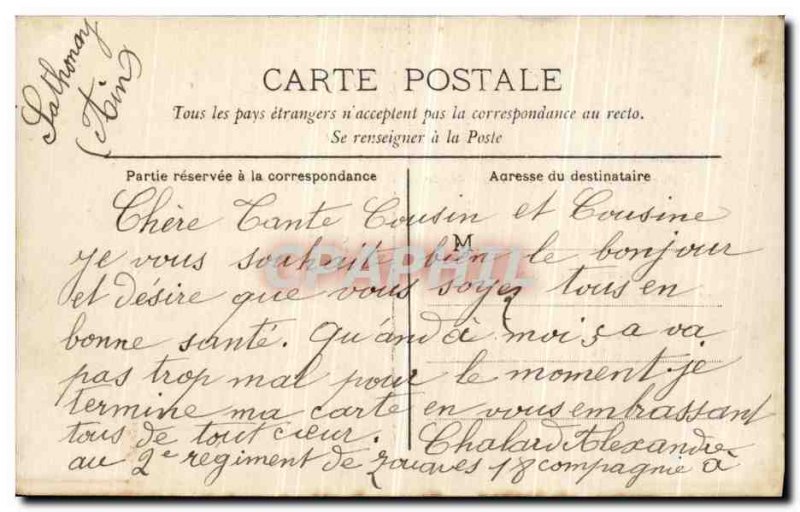 Sathonay
(Ain)
CARTE POSTALE
Tous les pays étrangers n'acceptent pas la correspondance au recto.
Se renseigner à la Poste
Partie réservée à la correspondance
Adresse du destinataire
M
Chère Tante Cousin et Cousine
je vous souhaite bien le bonjour
et désire que vous soyez tous en
bonne santé. Quand à moi sa va
pas trop mal pour le moment. je
termine ma carte en vous embrassant
tous de tout cœur. Chalard Alexandre
au 2e regiment de zouaves 18 compagnie à
CPAPHIL